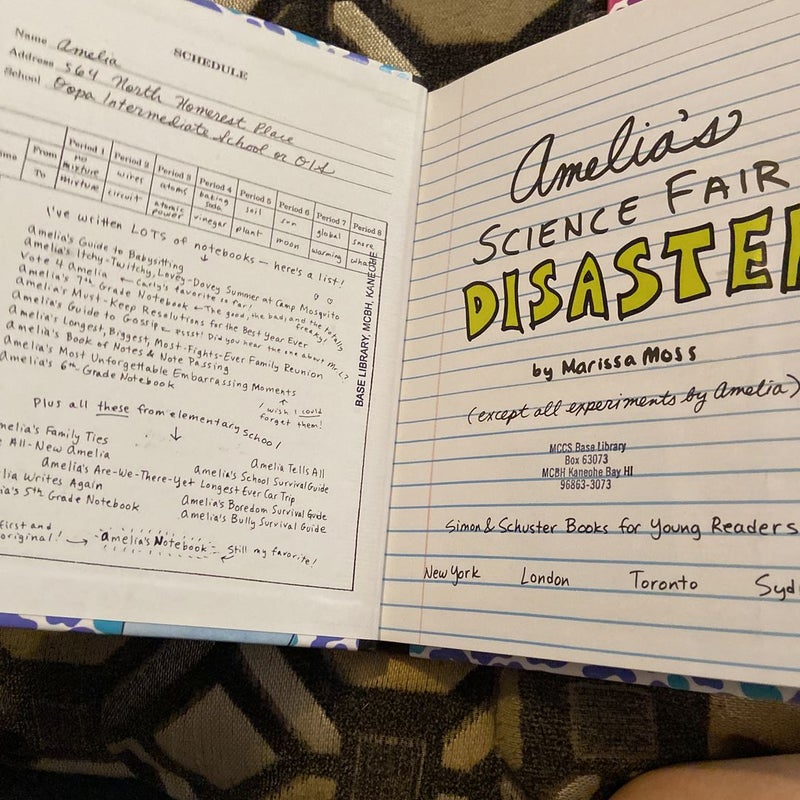 SCHEDULE
Name Amelia
Address 564 North Homerest Place
School Oopa Intermediate School or OIS
From Period 1 Period 2 Period 3 Period 4 Period 5 Period 6 Period 7 Period 8
To
no mixture wires atoms baking soda soil sun global snore
mixture circuit atomic power vinegar plant moon warming
I've written LOTS of notebooks — here's a list!
Amelia's Guide to Babysitting
Amelia's Itchy-Twitchy, Lovey-Dovey Summer at Camp Mosquito
Vote 4 Amelia ← Carly's favorite so far!
Amelia's 7th Grade Notebook ← The good, the bad, and the totally freaky!
Amelia's Must-Keep Resolutions for the Best Year Ever
Amelia's Guide to Gossip ← Pssst! Did you hear the one about Mr. L?
Amelia's Longest, Biggest, Most-Fights-Ever Family Reunion
Amelia's Book of Notes & Note Passing
Amelia's Most Unforgettable Embarrassing Moments
Amelia's 6th Grade Notebook
I wish I could forget them!
Plus all these from elementary school!
Amelia's Family Ties
All-New Amelia
Amelia Tells All
Amelia's Are-We-There-Yet Longest Ever Car Trip
Amelia's School Survival Guide
lia Writes Again
Amelia's Boredom Survival Guide
ia's 5th Grade Notebook
Amelia's Bully Survival Guide
first and original! → Amelia's Notebook ← still my favorite!
BASE LIBRARY, MCBH, KANEOHE
Amelia's
SCIENCE FAIR
DISASTER
by Marissa Moss
(except all experiments by Amelia)
MCCS Base Library
Box 63073
MCBH Kaneohe Bay HI
96863-3073
Simon & Schuster Books for Young Readers
New York London Toronto Syd